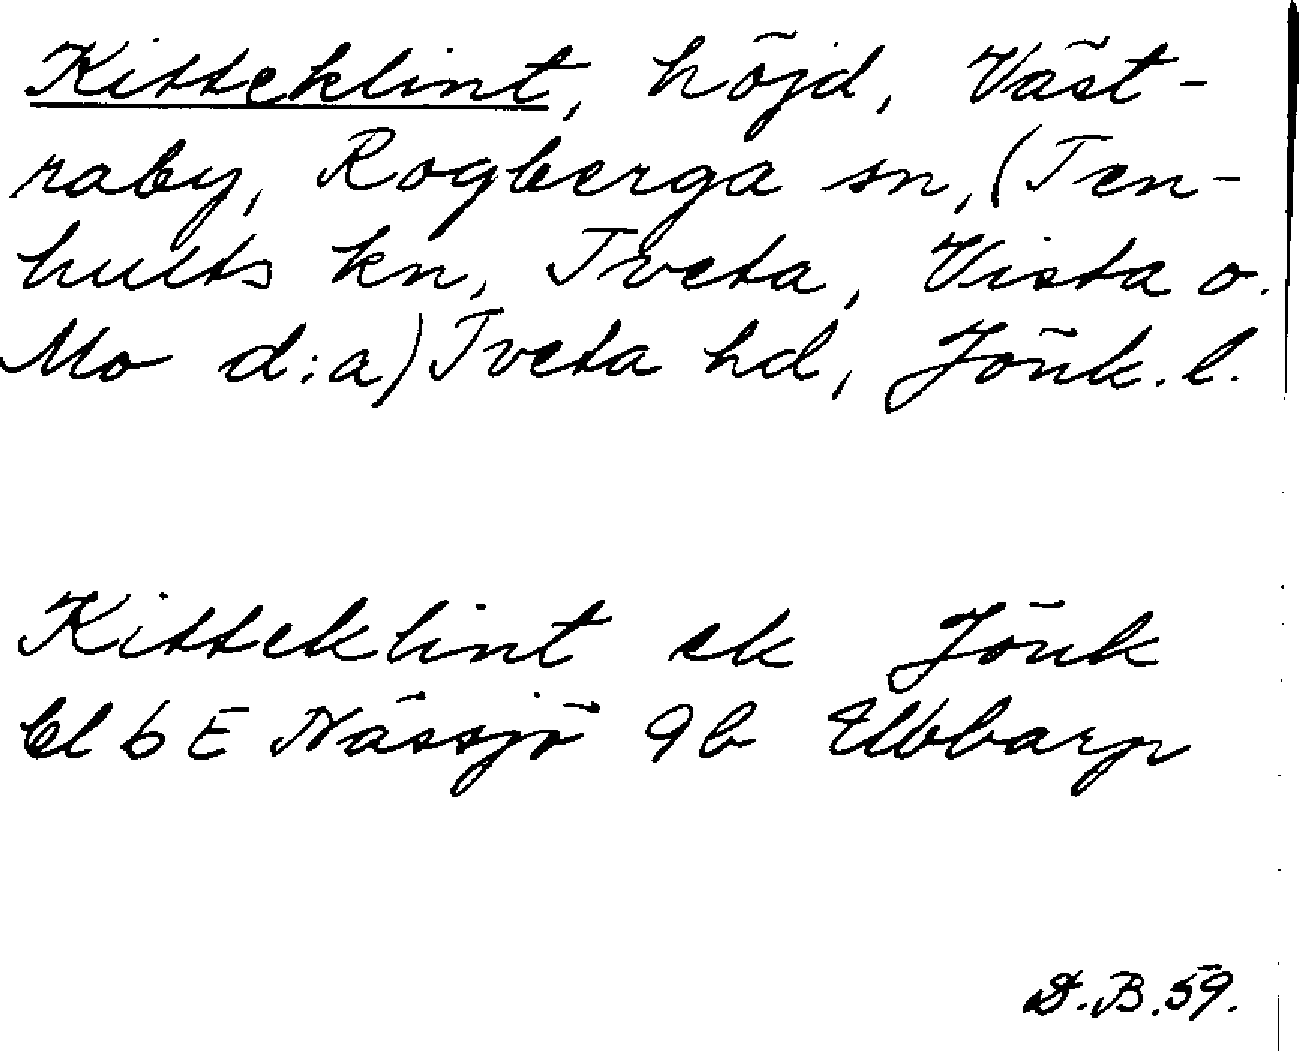 Kitteklint, höjd, Väst-
raby, Rogberga sn, (Ten-
hults kn, Tveta, Vista o.
Mo d:a) Tveta hd, Jönk. l.
Kitteklint ek Jönk
bl 6 E Nässjö 9b Ubbarp
D.B.59.